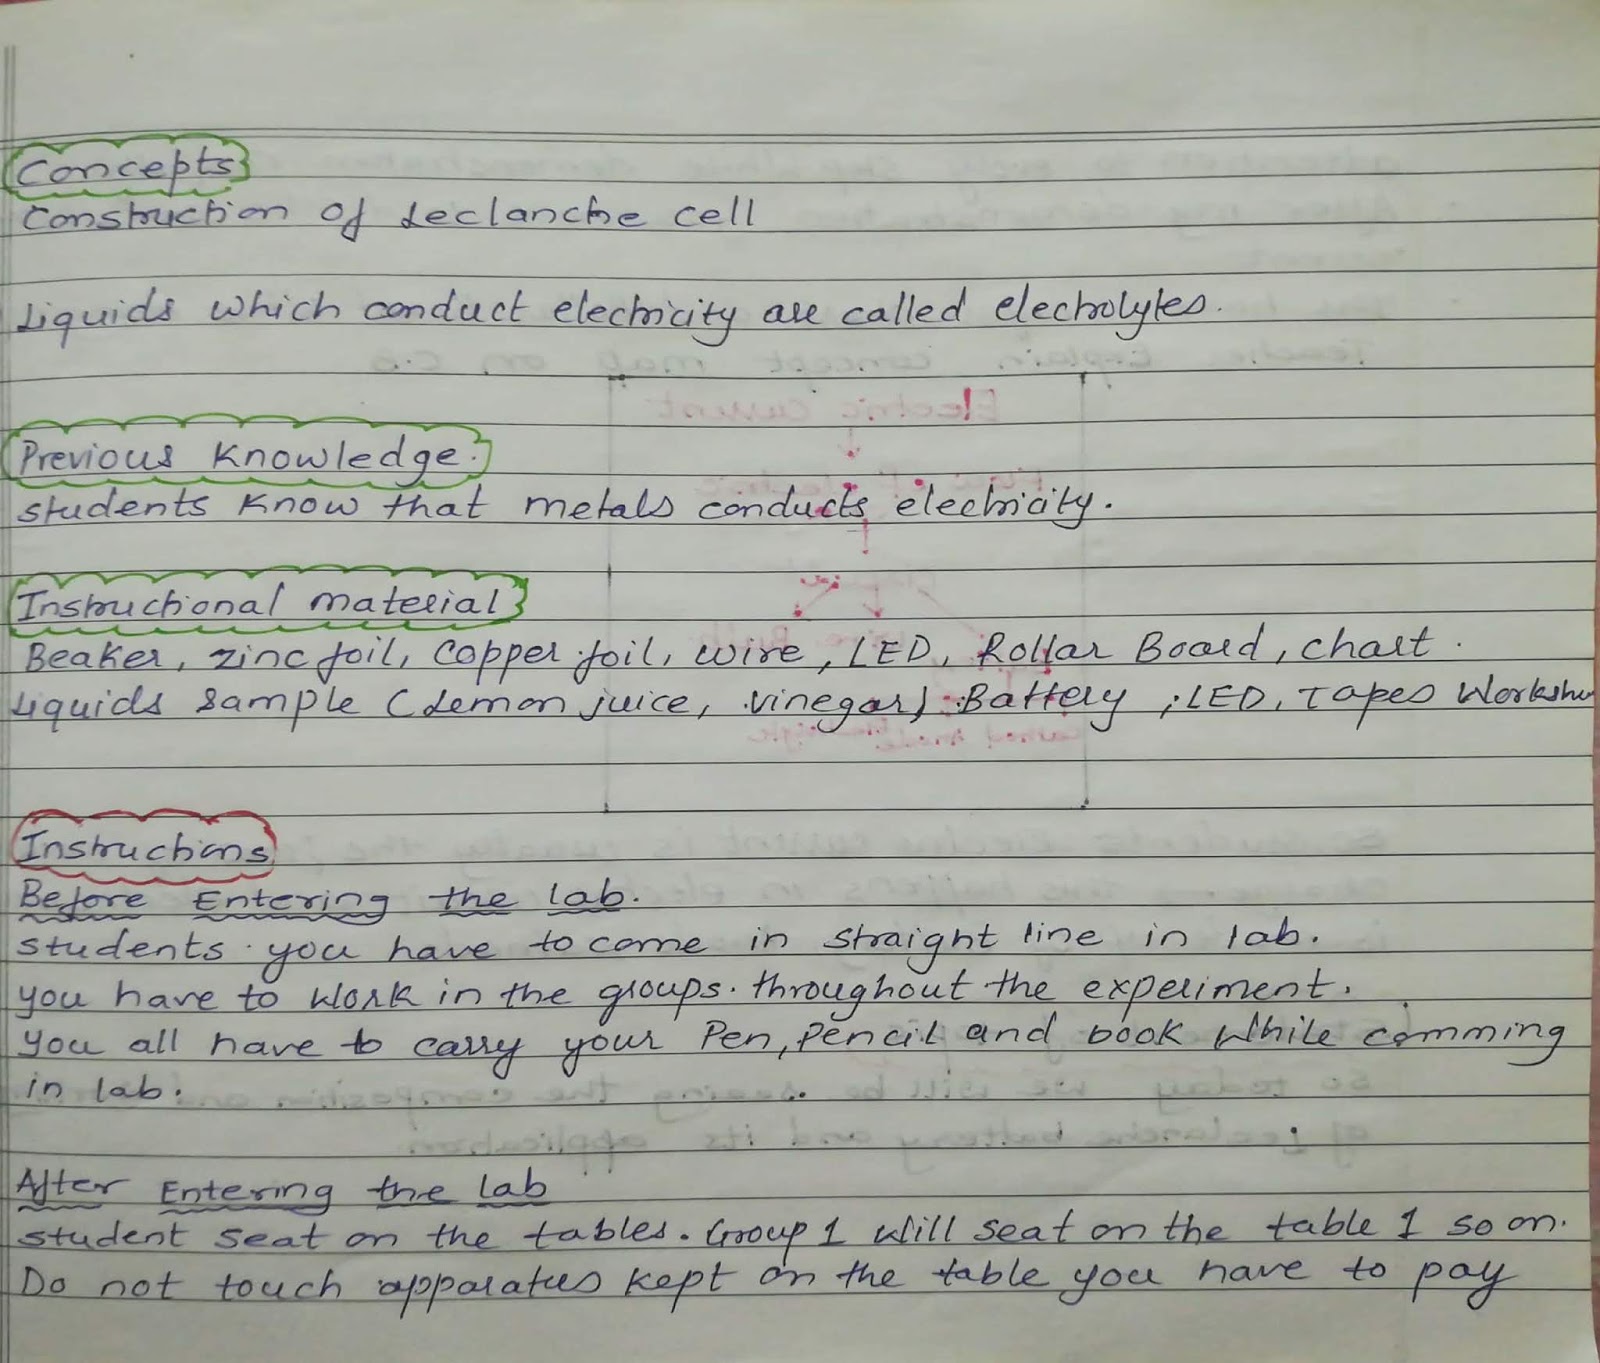 Concepts
Construction of Leclanche cell
Liquids which conduct electricity are called electrolytes.
Previous Knowledge.
students know that metals conducts electricity.
Instructional material
Beaker, zinc foil, copper foil, wire, LED, Rollar Board, chart.
Liquids sample (Lemon juice, vinegar) Battery, LED, Tapes
Instructions
Before Entering the lab.
students you have to come in straight line in lab.
you have to work in the groups. throughout the experiment.
you all have to carry your Pen, Pencil and book while comming
in lab.
After Entering the Lab
student seat on the tables. Group 1 will seat on the table 1 so on.
Do not touch apparatus kept on the table you have to pay